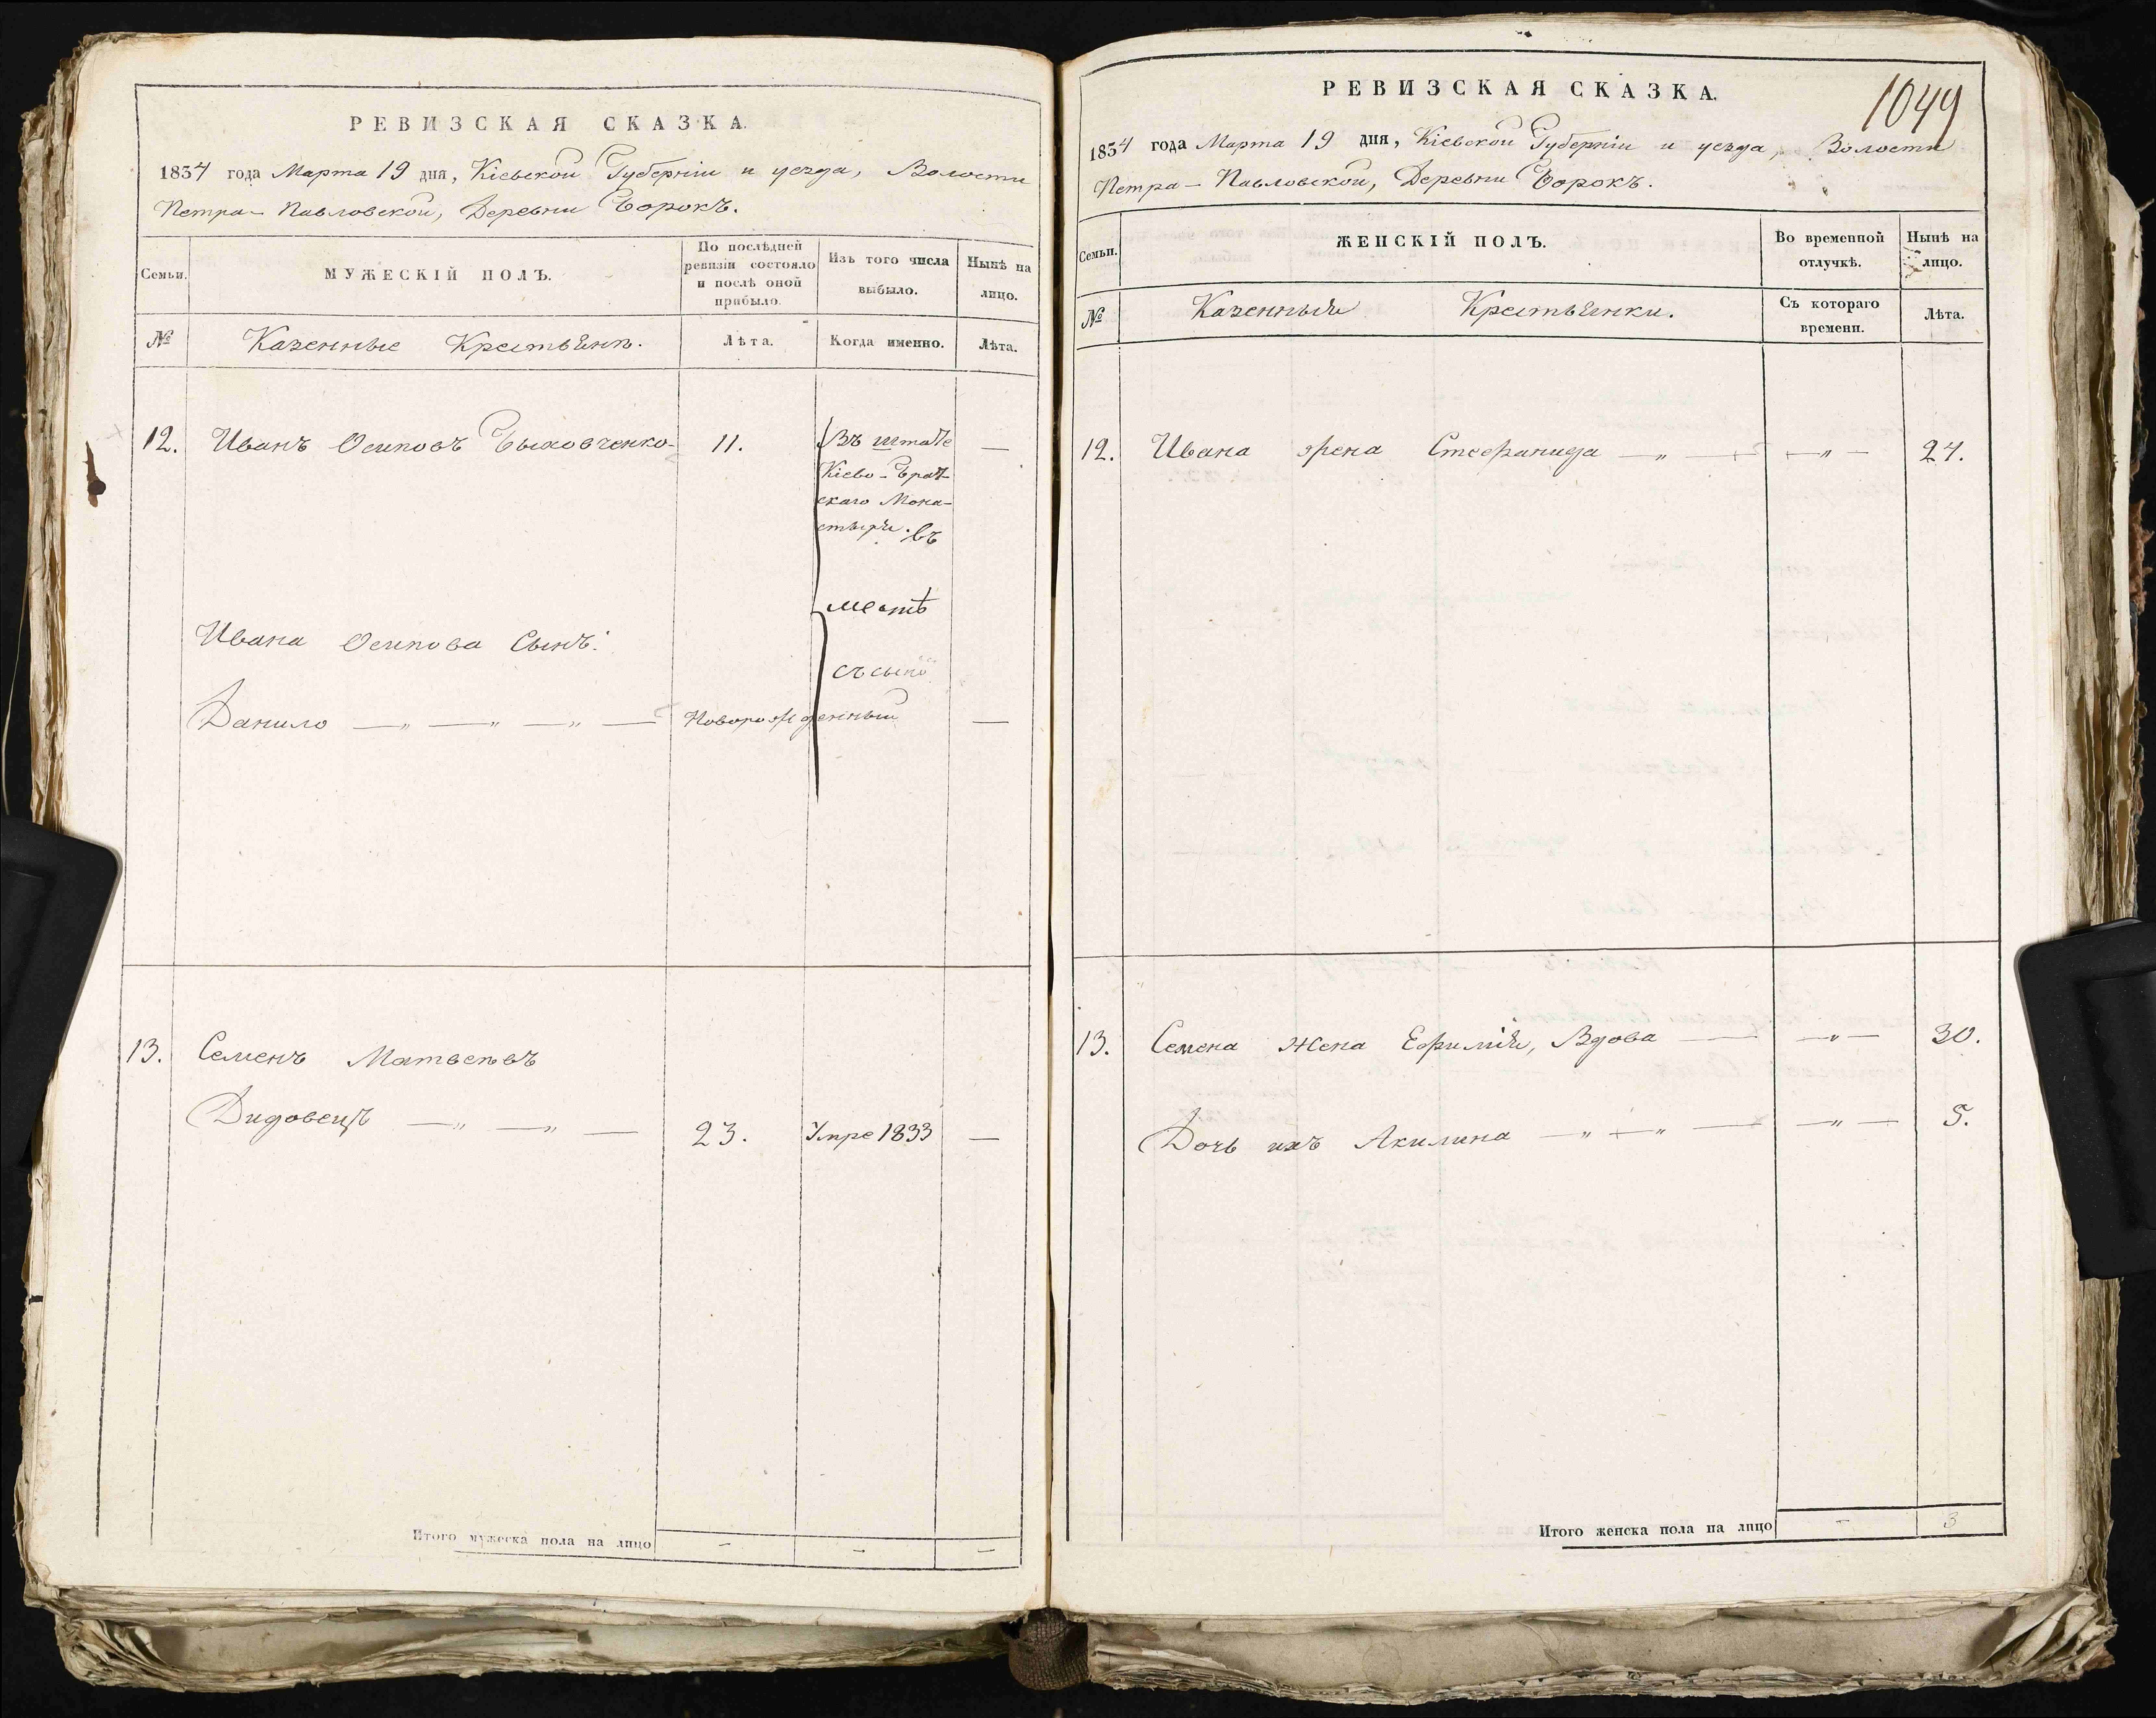 РЕВИЗСКАЯ СКАЗКА.
1834 года Марта 19 дня, Кіевской Губерніи и уезда, Волости
Петра-Павловской, Деревни Борокъ.
Семьи.
МУЖЕСКІЙ ПОЛЪ.
По послѣдней ревизіи состояло и послѣ оной прибыло.
Изъ того числа выбыло.
Нынѣ на лицо.
№
Казенные Крестьяне.
Лѣта.
Когда именно.
Лѣта.
12. Иванъ Осиповъ Быховченко 11. Въ штате —
Кіево-Брат-
скаго Мона-
стыря. въ
Ивана Осипова Сынъ: месте
съ сыно
Данило — „ — „ — „ — Новорожденный —
13. Семенъ Матвеевъ
Дидовецъ — „ — „ — 23. Умре 1833 —
Итого мужеска пола на лицо — — —
РЕВИЗСКАЯ СКАЗКА.
1049
1834 года Марта 19 дня, Кіевской Губерніи и уезда, Волости
Петра-Павловской, Деревни Борокъ.
Семьи.
ЖЕНСКІЙ ПОЛЪ.
Во временной отлучкѣ.
Нынѣ на лицо.
№
Казенныя Крестьянки.
Съ котораго времени.
Лѣта.
12. Ивана жена Стефанида — „ — — „ — 24.
13. Семена жена Ефимія, Вдова — — „ — 30.
Дочь ихъ Акилина — „ — „ — — „ — 5.
Итого женска пола на лицо — 3